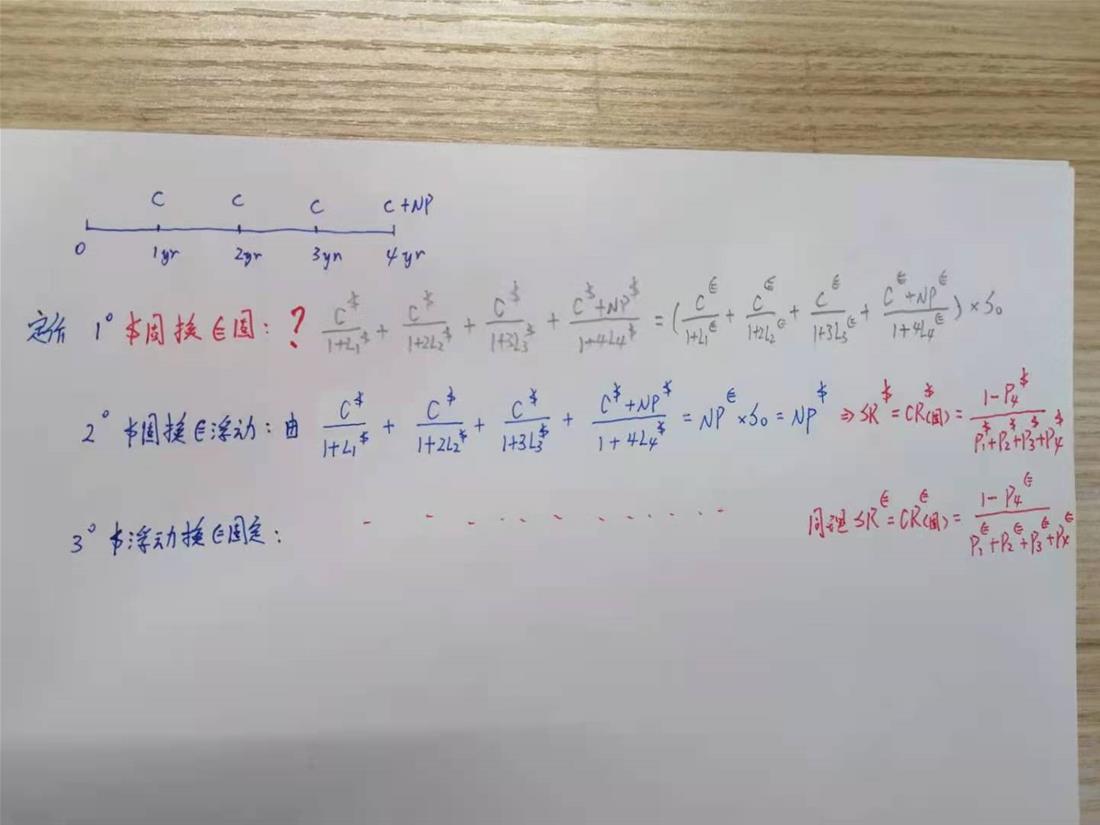 C C C C+NP
0 1yr 2yr 3yr 4yr
定价 1° $固换€固：? C^$/(1+L₁^$) + C^$/(1+2L₂^$) + C^$/(1+3L₃^$) + (C^$+NP^$)/(1+4L₄^$) = (C^€/(1+L₁^€) + C^€/(1+2L₂^€) + C^€/(1+3L₃^€) + (C^€+NP^€)/(1+4L₄^€)) × S₀
2° $固换€浮动：由 C^$/(1+L₁^$) + C^$/(1+2L₂^$) + C^$/(1+3L₃^$) + (C^$+NP^$)/(1+4L₄^$) = NP^€ × S₀ = NP^$ ⇒ SR^$ = CR^$(固) = (1-P₄^$)/(P₁^$+P₂^$+P₃^$+P₄^$)
3° $浮动换€固定： - - - - - - - - - - - 同理 SR^€ = CR^€(固) = (1-P₄^€)/(P₁^€+P₂^€+P₃^€+P₄^€)